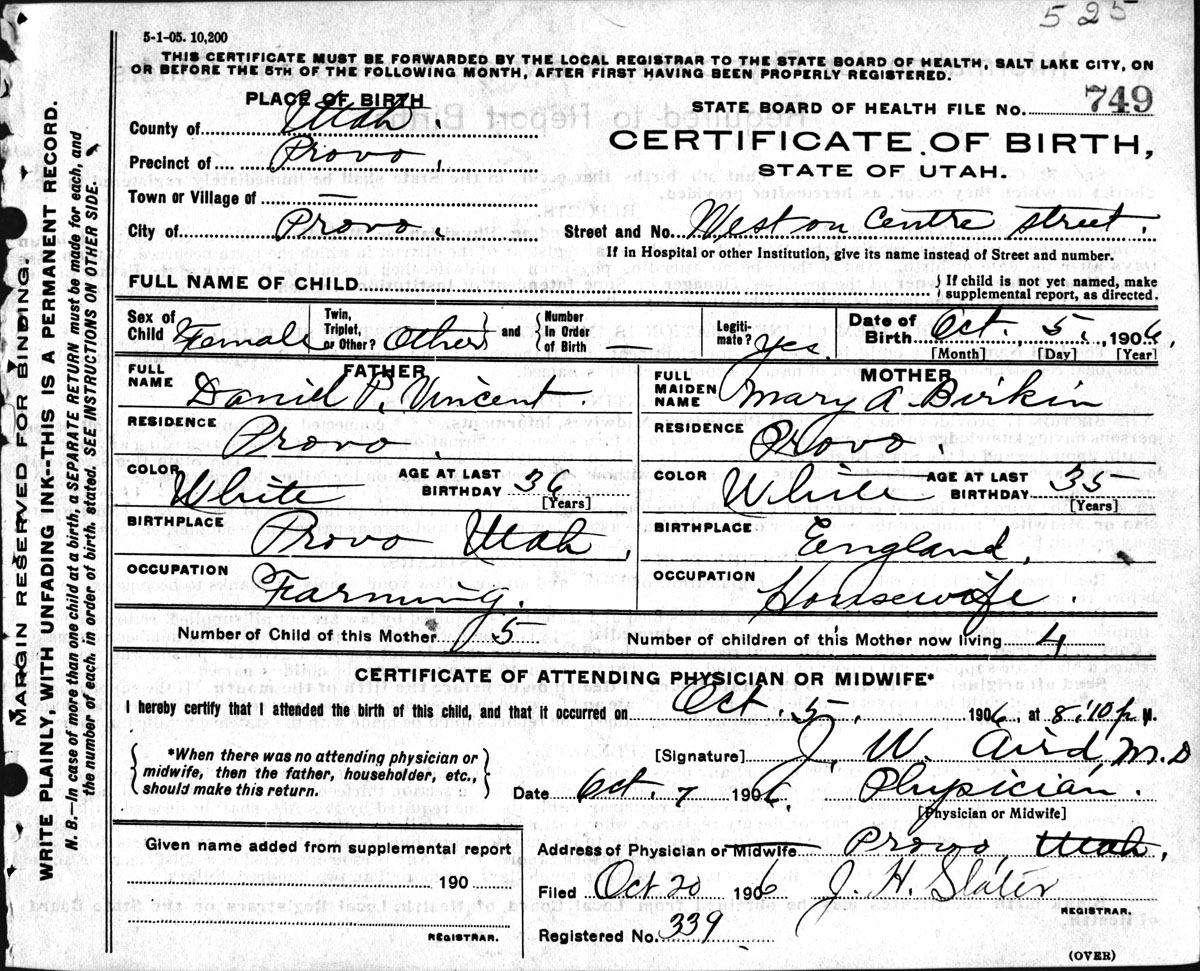 525
5-1-05. 10,200
THIS CERTIFICATE MUST BE FORWARDED BY THE LOCAL REGISTRAR TO THE STATE BOARD OF HEALTH, SALT LAKE CITY, ON
OR BEFORE THE 5TH OF THE FOLLOWING MONTH, AFTER FIRST HAVING BEEN PROPERLY REGISTERED.
PLACE OF BIRTH
STATE BOARD OF HEALTH FILE No. 749
County of Utah.
CERTIFICATE OF BIRTH,
Precinct of Provo,
STATE OF UTAH.
Town or Village of —
City of Provo. Street and No. West on Centre street.
If in Hospital or other Institution, give its name instead of Street and number.
FULL NAME OF CHILD { If child is not yet named, make supplemental report, as directed.
Sex of Child Female Twin, Triplet, or Other? Other } and { Number In Order of Birth — Legitimate? yes. Date of Birth Oct. 5., 1906.
[Month] [Day] [Year]
FATHER MOTHER
FULL NAME Daniel P. Vincent. FULL MAIDEN NAME Mary A Birkin
RESIDENCE Provo. RESIDENCE Provo.
COLOR White AGE AT LAST BIRTHDAY 36 [Years] COLOR White AGE AT LAST BIRTHDAY 35 [Years]
BIRTHPLACE Provo Utah. BIRTHPLACE England.
OCCUPATION Farming. OCCUPATION Housewife.
Number of Child of this Mother 5 Number of children of this Mother now living 4
CERTIFICATE OF ATTENDING PHYSICIAN OR MIDWIFE*
I hereby certify that I attended the birth of this child, and that it occurred on Oct. 5. 1906, at 8:10 p M.
{ *When there was no attending physician or midwife, then the father, householder, etc., should make this return. }
[Signature] J. W. Aird, M.D
Date Oct. 7 1906. Physician.
[Physician or Midwife]
Given name added from supplemental report
Address of Physician or Midwife Provo, Utah,
190
Filed Oct 20 1906 J. H. Slater
REGISTRAR.
Registered No. 339
REGISTRAR.
(OVER)
MARGIN RESERVED FOR BINDING
WRITE PLAINLY, WITH UNFADING INK--THIS IS A PERMANENT RECORD.
N. B.—In case of more than one child at a birth, a SEPARATE RETURN must be made for each, and
the number of each, in order of birth, stated. SEE INSTRUCTIONS ON OTHER SIDE.